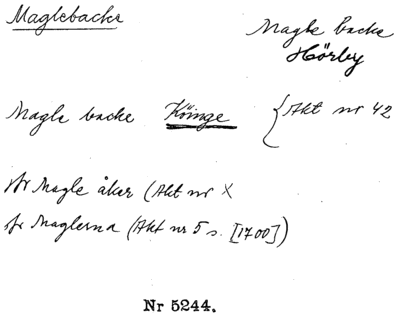 Maglebacke
Magle backe
Hörby
Magle backe Köinge { Akt nr 42
Jfr Magle åker (Akt nr X
Jfr Maglerna (Akt nr 5 s. [1700])
Nr 5244.